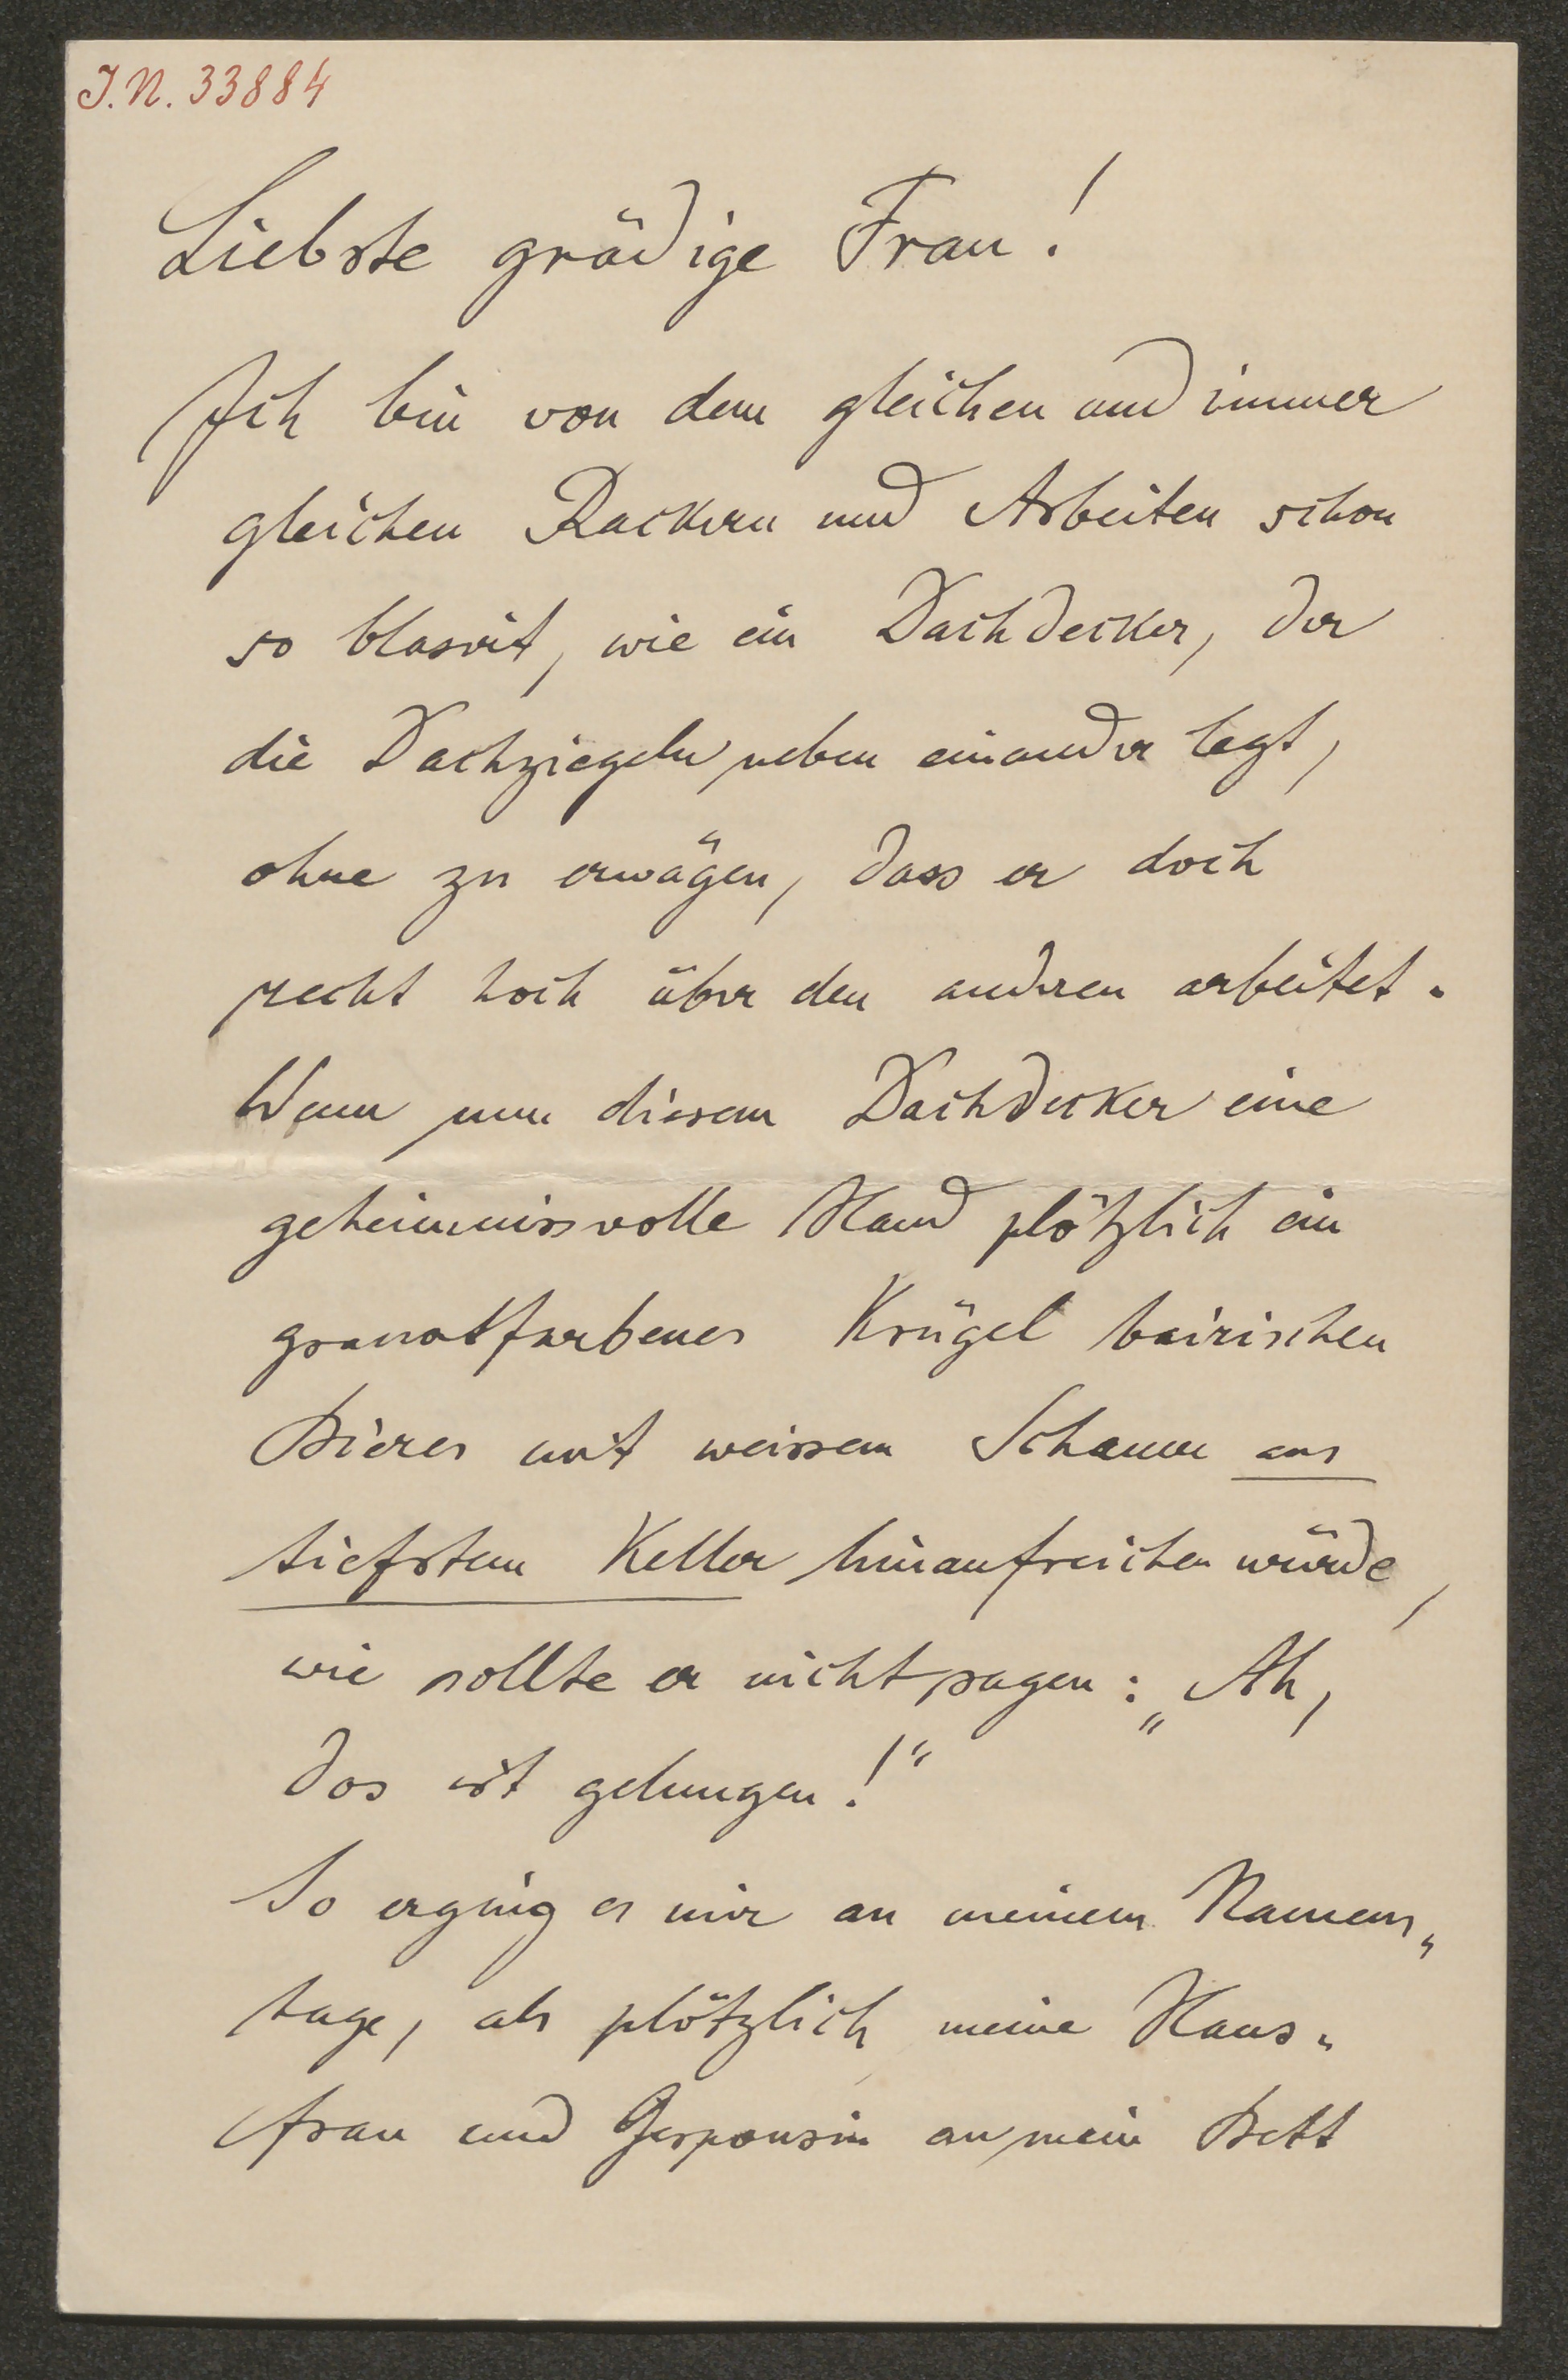 I.N. 33884
Liebste gnädige Frau!
Ich bin von dem gleichen und immer
gleichen Rackern und Arbeiten schon
so blasirt, wie ein Dachdecker, der
die Dachziegeln neben einander legt,
ohne zu erwägen, dass er doch
recht hoch über den anderen arbeitet.
Wenn nun diesem Dachdecker eine
geheimnissvolle Hand plötzlich ein
granatfarbenes Krügel bairischen
Bieres mit weissem Schaum aus
tiefstem Keller hinaufreichen würde,
wie sollte er nicht sagen: „Ah,
das ist gelungen!“
So erging es mir an meinem Namens„
tage, als plötzlich meine Haus„
frau und Gesponsin an mein Bett